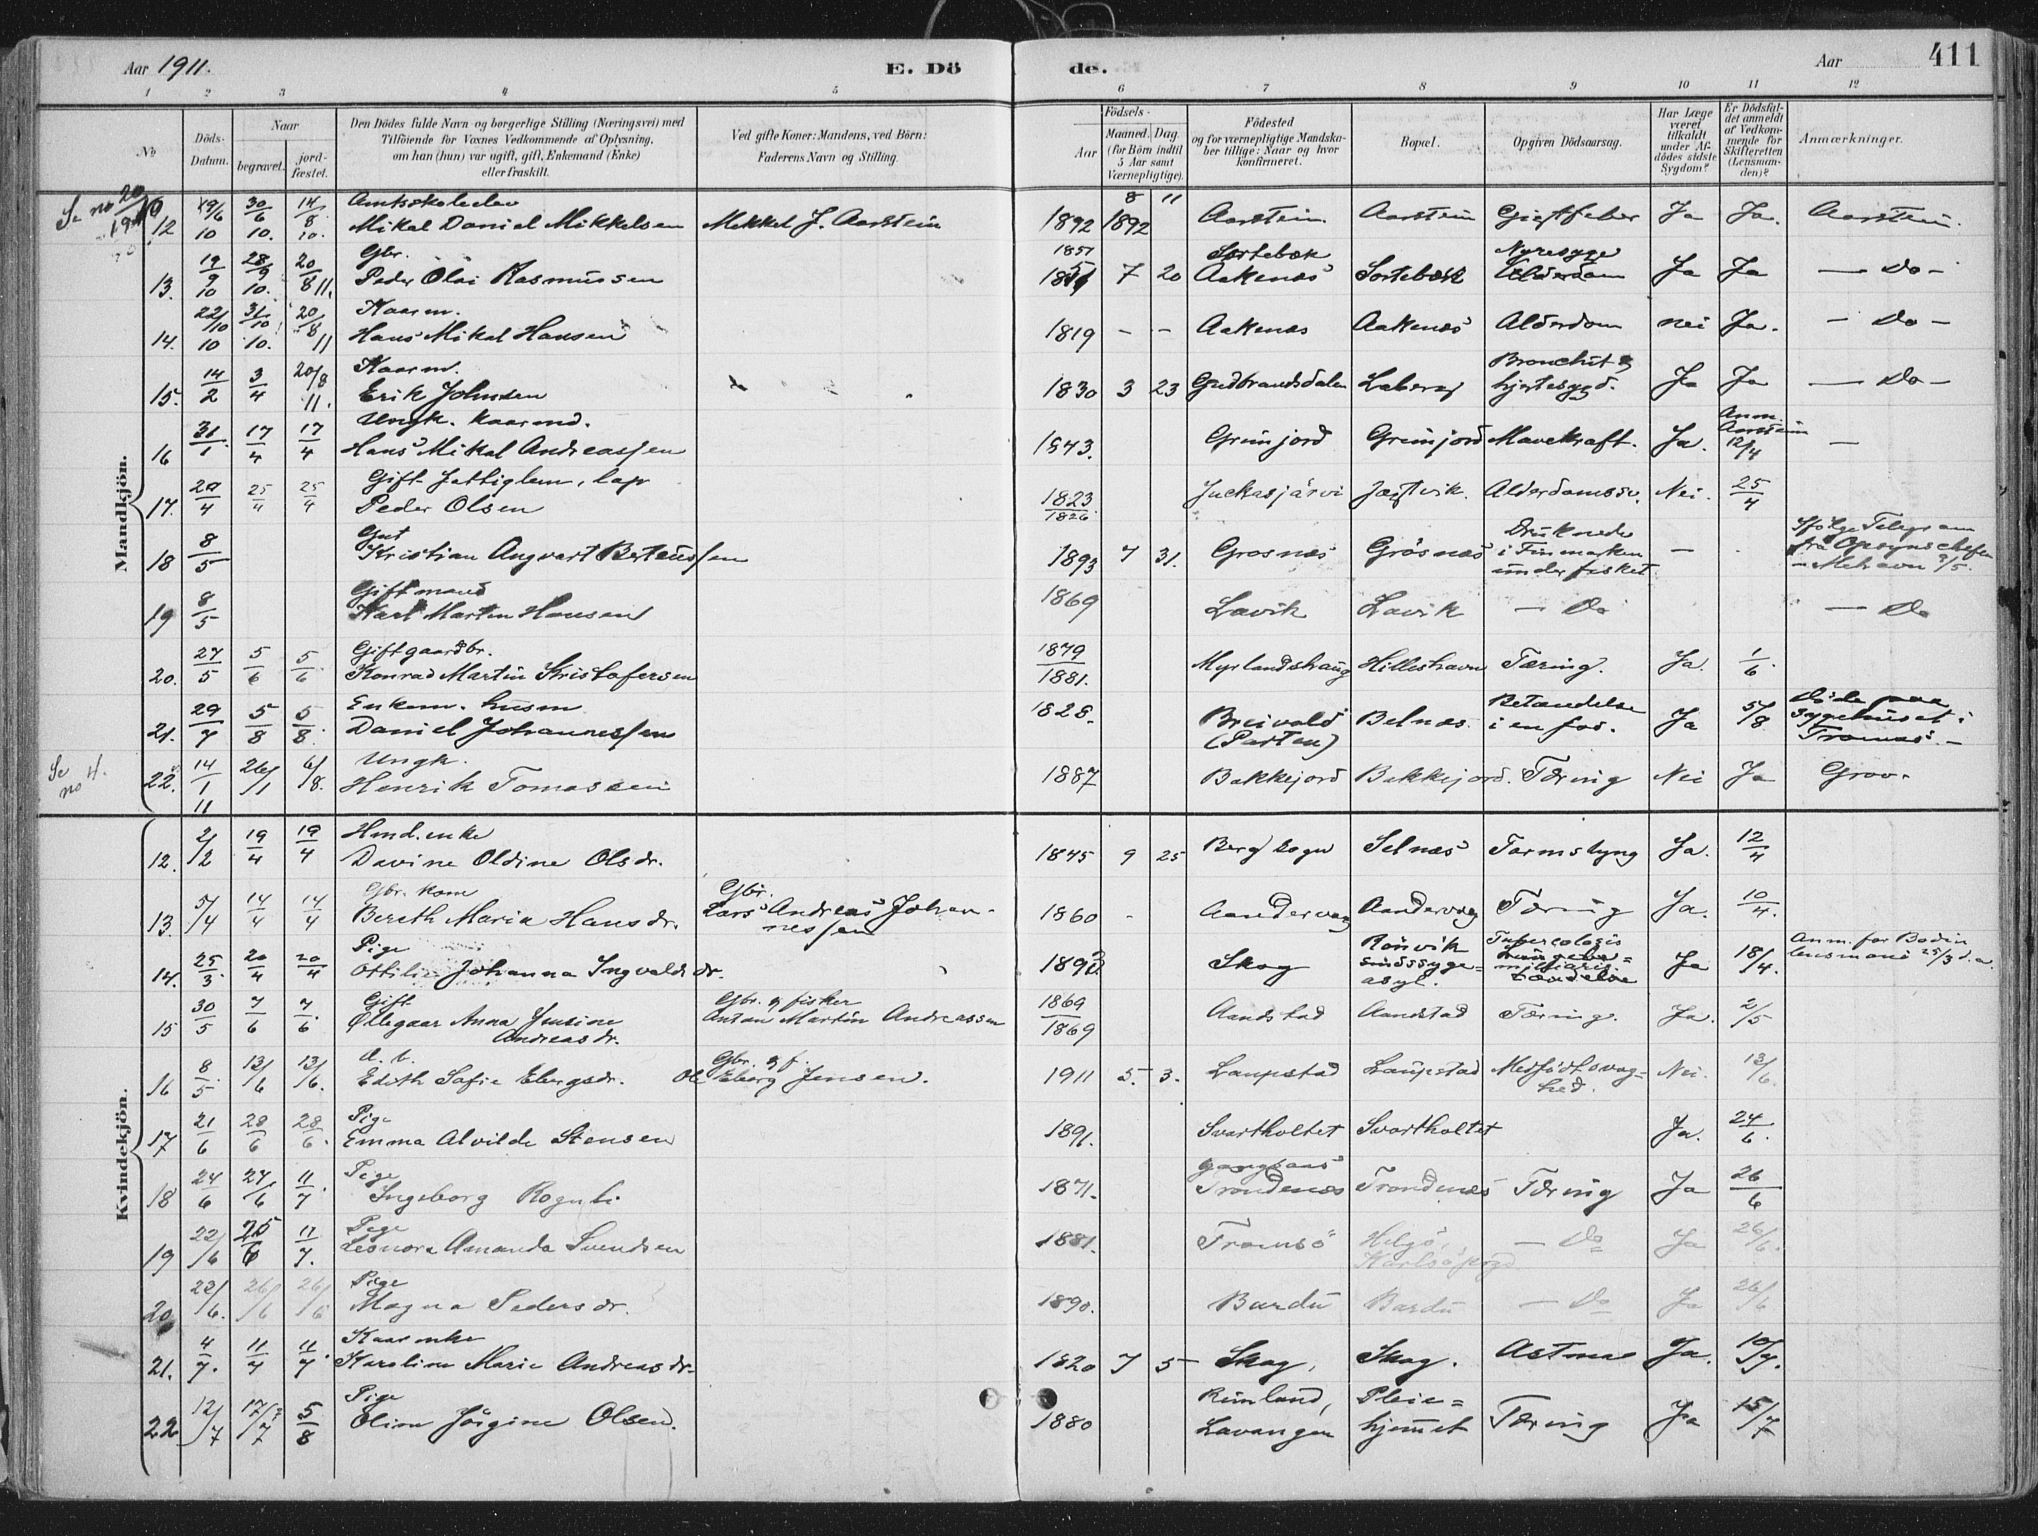 Aar 1911.
E. Dö
de.
Aar
411
1 2 3 4 5 6 7 8 9 10 11 12
No
Döds-Datum.
Naar
begravet.
jord-fæstet.
Den Dödes fulde Navn og borgerlige Stilling (Næringsvei) med
Tilföiende for Voxnes Vedkommende af Oplysning,
om han (hun) var ugift, gift, Enkemand (Enke)
eller fraskilt.
Ved gifte Koner: Mandens, ved Börn:
Faderens Navn og Stilling.
Födsels-
Aar
Maaned. Dag.
(for Börn indtil
5 Aar samt
Værnepligtige).
Födested
og for værnepligtige Mandska-
ber tillige: Naar og hvor
konfirmeret.
Bopæl.
Opgiven Dödsaarsag.
Har Læge
været
tilkaldt
under Af-
dödes sidste
Sygdom?
Er Dödsfal-
det anmeldt
af Vedkom-
mende for
Skifteretten
(Lensman-
den)?
Anmærkninger.
Mandkjön.
Se no 20
12 19/6 10 30/6 10. 14/8 10. Mikal Daniel Mikkelsen Mikkel J. Aarstein 1892 1892 8 11 Aarstein Aarstein Gigtfeber Ja Ja. Aarstein.
13. 19/9 10 28/9 10. 20/8 11. Gbr. Peder Olai Rasmussen 1851 7 20 Sortebæk Aakenæs Sortebæk Nyresyge Alderdom Ja Ja — Do —
14. 22/10 10 31/10 10. 20/8 11 Kaarm. Hans Mikal Hansen 1819 - - Aakenæs Aakenæs Alderdom nei Ja. — Do —
15. 14/2 3/4 20/8 11. Kaarm. Erik Johnsen 1830 3 23 Gudbrandsdalen Laberg Bronchit og hjertesygd. Ja Ja — Do —
16 31/1 17/4 17/4 Ungk. kaarmd. Hans Mikal Andreassen 1843. Grimjord Grimjord Mavekraft. Ja. Anm. Aarstein 12/4 —
17. 20/4 25/4 25/4 Gift lap Peder Olsen 1823 1826 Juckasjärvi Jægtvik. Alderdomssv. Nei. 25/4
18 8/5 Gut Kristian Angvart Berteussen 1893 7 31. Grosnæs Grösnæs Druknede i Finmarken under fisket — Ifölge Telegram fra Opsynschefen Mehavn 9/5.
19 8/5 Gift mand Karl Martin Hansen 1869 Lavik Lavik — Do — Do
20. 27/5 5/6 5/6 Gift gaardbr. Konrad Martin Kristofersen 1879 1881. Myrlandshaug Hilleshavn Tæring. Ja. 1/6
21. 29/7 5/8 5/8 Enkem. husm. Daniel Johannessen 1828. Breivold (Parten) Belnæs. Betændelse i en fod. Ja 5/8 Döde paa Sygehuset i Tromsö. —
Se no 4.
22. 14/1 11 26/1 6/8. Ungk. Henrik Tomassen 1887 Bakkejord Bakkejord. Tæring Nei Ja Grov.
Kvindekjön.
12. 2/2 19/4 19/4 Hmd. enke Davine Oldine Olsdr. 1845 9 25 Berg sogn Selnæs Tarmslyng Ja. 12/4
13. 5/4 14/4 14/4 Gbr. kone Bereth Maria Hansdr. Gbr. Lars Andreas Johannessen 1860 - Aandervaag Aandervaag Tæring Ja. 10/4.
14. 25/3 20/4 20/4 Pige Ottilie Johanna Ingvaldsdr. Skog Rönvik sindssyge-asyl. Ja 18/4. Anm. for Bodin lensmand 25/3 d.a.
15 30/5 7/6 7/6 Gift Ollegaar Anna Jensine Andreasdr. Gbr. og fisker Anton Martin Andreassen 1869 1869 Aandstad Aandstad Tæring. Ja. 2/5
16 8/5 13/6 13/6. Edith Sofie Ebergsdr. Gbr. og f. Ole Eberg Jensen. 1911 5. 3. Laupstad Laupstad Medfödt svaghed. Nei. 13/6.
17 21/6 28/6 28/6. Pige Emma Alvilde Stensen 1891. Svartholtet Svartholtet Ja. 24/6.
18 24/6 27/6 11/7 Pige Ingeborg Rognli 1871. Trondenæs Trondenæs Tæring Ja 26/6
19 22/6 25/6 11/7. Pige Leonora Amanda Svendsen 1881. Tromsö Helgö, Karlsö — Do Ja 26/6.
20. 22/6. 26/6 26/6 Pige Magna Pedersdr. 1890. Bardu Bardu — Do Ja 26/6
21. 4/7. 11/7 11/7. Kaarenke Karoline Marie Andreasdr. 1820 7 5 Skog, Skog. Astma Ja. 10/7.
22 12/7 17/7 5/8 Pige Oline Jörgine Olsen. 1880 Rimland, Lavangen Pleiehjemmet Tæring Ja 15/7